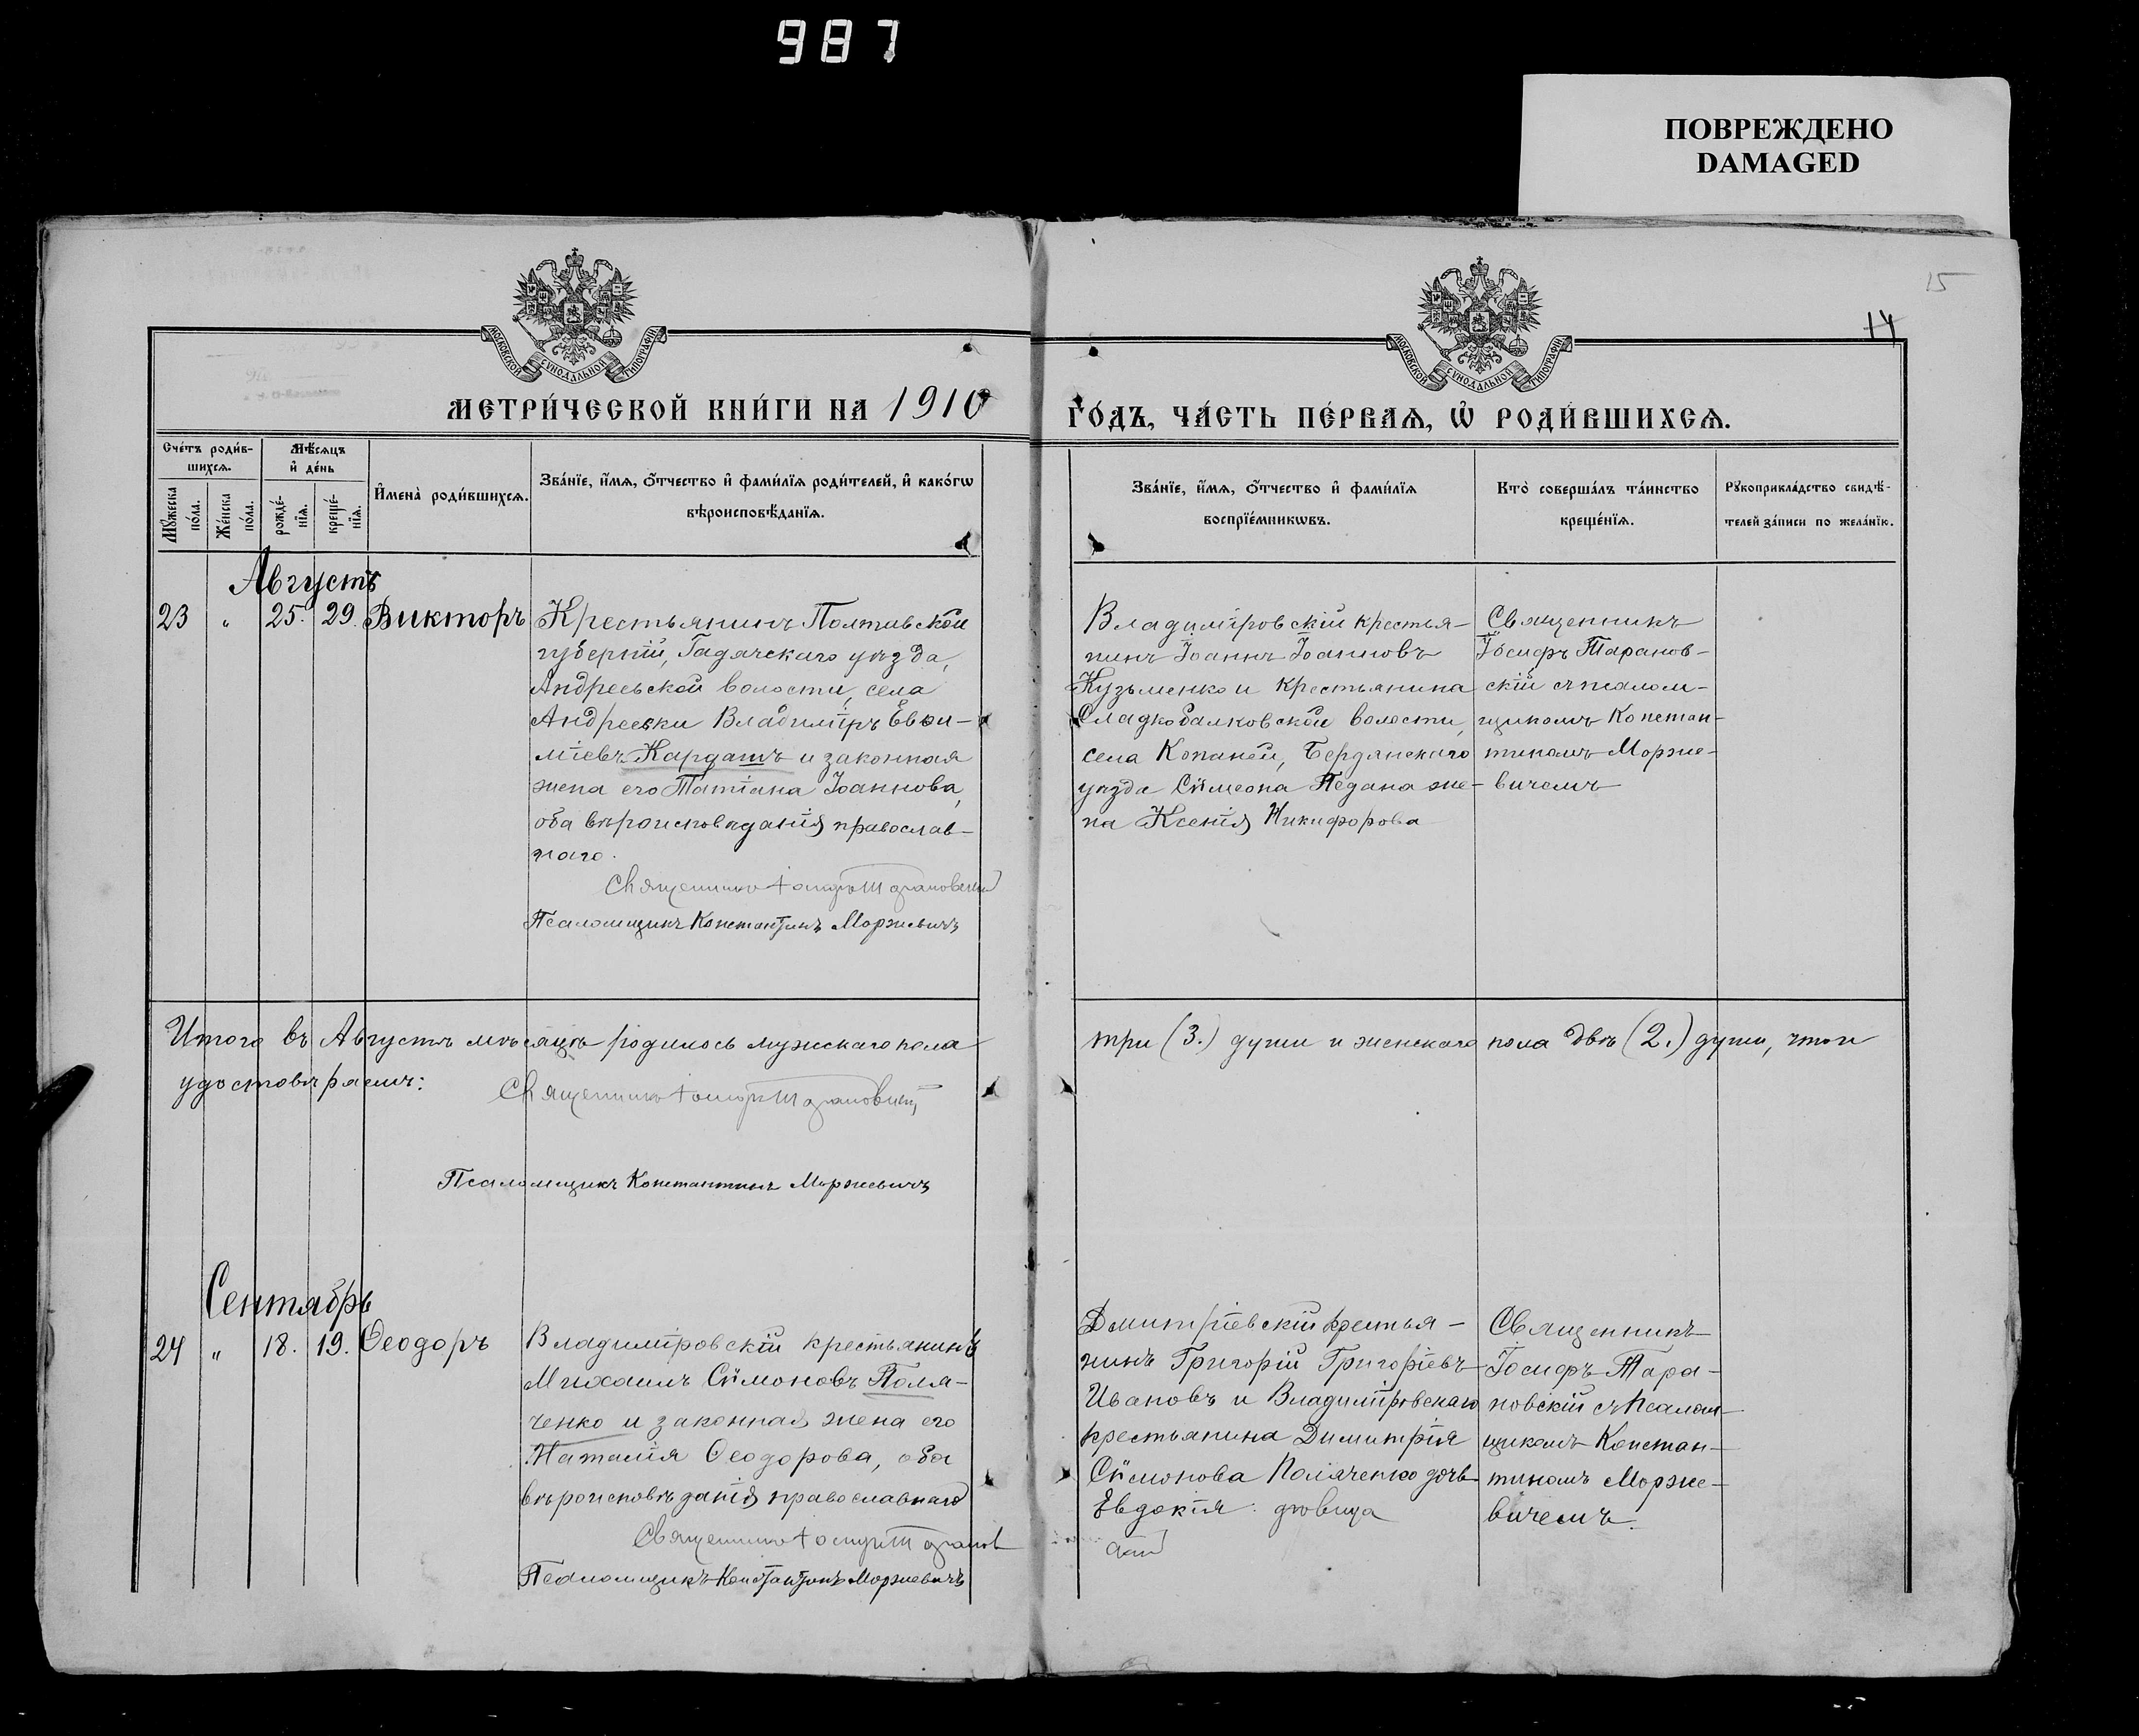 987
ПОВРЕЖДЕНО
DAMAGED
15
14
МОСКОВСКОЙ СѴНОДАЛЬНОЙ ТИПОГРАФІИ
МОСКОВСКОЙ СѴНОДАЛЬНОЙ ТИПОГРАФІИ
МЕТРИ́ЧЕСКОЙ КНИ́ГИ НА 1910
ГО́ДЪ, ЧА́СТЬ ПЕ́РВАѦ, Ѽ РОДИ́ВШИХСѦ.
Сче́тъ роди́в-
шихсѧ.
Мꙋ́жеска
по́ла.
Же́нска
по́ла.
Мѣ́сѧцъ
и҆ де́нь
рожде́-
нїѧ.
креще́-
нїѧ.
И҆мена̀ роди́вшихсѧ.
Зва́нїе, и҆́мѧ, ѻ҆́тчество и҆ фами́лїѧ роди́телей, и҆ како́гѡ
вѣроисповѣ́данїѧ.
Зва́нїе, и҆́мѧ, ѻ҆́тчество и҆ фами́лїѧ
воспрїе́мникѡвъ.
Кто̀ соверша́лъ та́инство
креще́нїѧ.
Рꙋкоприкла́дство свидѣ́-
телей за́писи по жела́нїю.
Августъ
23 „ 25. 29. Викторъ
Крестьянинъ Полтавской
губерніи, Гадячскаго уѣзда,
Андреевской волости, села
Андреевки Владиміръ Евѳи-
міевъ Кардашъ и законная
жена его Татіана Іоаннова,
оба вѣроисповѣданія православ-
наго.
Священникъ Іосифъ Тарановскій
Псаломщикъ Константинъ Моржевичъ
Владиміровскій крестья-
нинъ Іоаннъ Іоанновъ
Кузьменко и крестьянина
Сладкобалковской волости,
села Копаней, Бердянскаго
уѣзда Сѵмеона Педана же-
на Ксенія Никифорова
Священникъ
Іосифъ Таранов-
скій съ псалом-
щикомъ Констан-
тиномъ Морже-
вичемъ
Итого въ Августѣ мѣсяцѣ родилось мужскаго пола три (3.) души и женскаго пола двѣ (2.) души, что и
удостовѣряемъ:
Священникъ Іосифъ Тарановскій
Псаломщикъ Константинъ Моржевичъ
Сентябрь
24 „ 18. 19. Ѳеодоръ
Владиміровскій крестьянинъ
Михаилъ Сѵмоновъ Поля-
ченко и законная жена его
Наталія Ѳеодорова, оба
вѣроисповѣданія православнаго
Священникъ Іосифъ Таранов
скій
Псаломщикъ Константинъ Моржевичъ
Дмитріевскій крестья-
нинъ Григорій Григоріевъ
Ивановъ и Владиміровскаго
крестьянина Димитрія
Сѵмонова Поляченко дочь
Евдокія девица
Священникъ
Іосифъ Тара-
новскій съ псалом-
щикомъ Констан-
тиномъ Морже-
вичемъ.